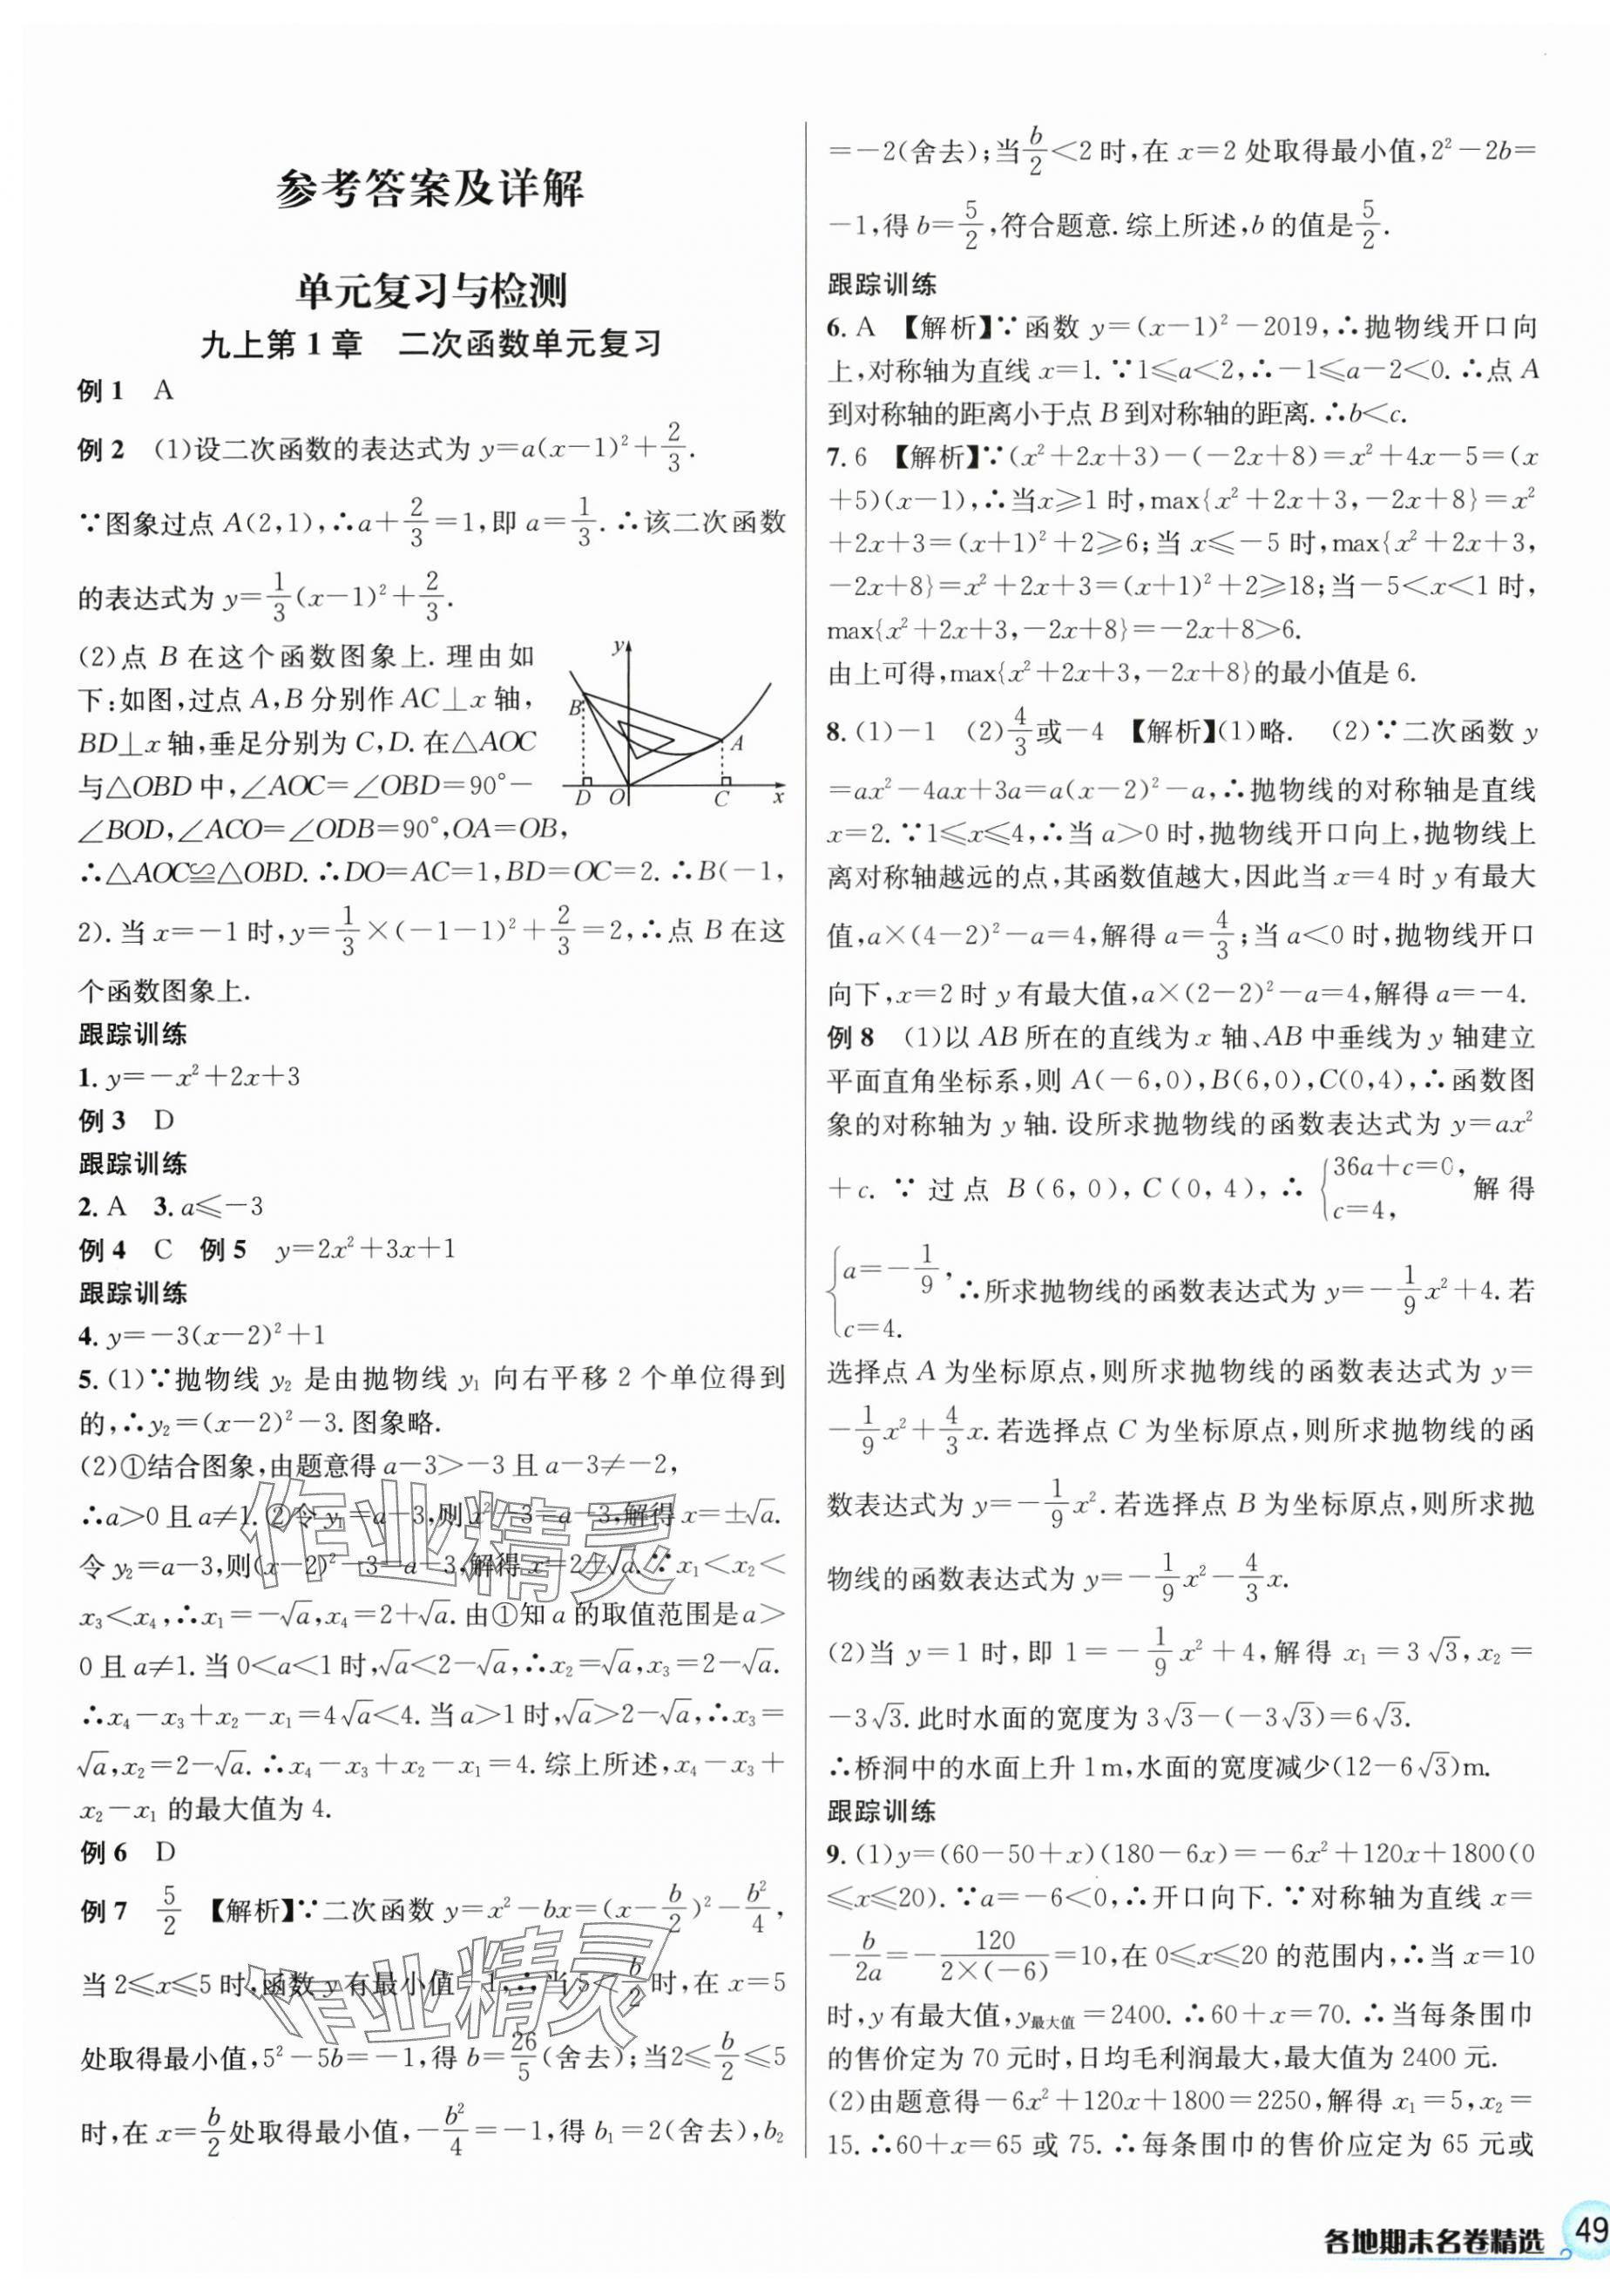 参考答案及详解
单元复习与检测
九上第1章 二次函数单元复习
例1 A
例2 (1)设二次函数的表达式为 y=a(x-1)²+2/3.
∵图象过点 A(2,1),∴a+2/3=1,即 a=1/3.∴该二次函数
的表达式为 y=1/3(x-1)²+2/3.
(2)点 B 在这个函数图象上.理由如
下:如图,过点 A,B 分别作 AC⊥x 轴,
BD⊥x 轴,垂足分别为 C,D.在△AOC
与△OBD 中,∠AOC=∠OBD=90°-
∠BOD,∠ACO=∠ODB=90°,OA=OB,
∴△AOC≌△OBD.∴DO=AC=1,BD=OC=2.∴B(-1,
2).当 x=-1 时,y=1/3×(-1-1)²+2/3=2,∴点 B 在这
个函数图象上.
y
B
A
D
O
C
x
跟踪训练
1.y=-x²+2x+3
例3 D
跟踪训练
2.A 3.a≤-3
例4 C 例5 y=2x²+3x+1
跟踪训练
4.y=-3(x-2)²+1
5.(1)∵抛物线 y₂ 是由抛物线 y₁ 向右平移 2 个单位得到
的,∴y₂=(x-2)²-3.图象略.
(2)①结合图象,由题意得 a-3>-3 且 a-3≠-2,
∴a>0 且 a≠1.②令 y₁=a-3,则 x²-3=a-3,解得 x=±√a.
令 y₂=a-3,则(x-2)²-3=a-3,解得 x=2±√a.∵x₁<x₂<
x₃<x₄,∴x₁=-√a,x₄=2+√a.由①知 a 的取值范围是 a>
0 且 a≠1.当 0<a<1 时,√a<2-√a,∴x₂=√a,x₃=2-√a.
∴x₄-x₃+x₂-x₁=4√a<4.当 a>1 时,√a>2-√a,∴x₃=
√a,x₂=2-√a.∴x₄-x₃+x₂-x₁=4.综上所述,x₄-x₃+
x₂-x₁ 的最大值为 4.
例6 D
例7 5/2 【解析】∵二次函数 y=x²-bx=(x-b/2)²-b²/4,
当 2≤x≤5 时,函数 y 有最小值-1,∴当 5<b/2 时,在 x=5
处取得最小值,5²-5b=-1,得 b=26/5(舍去);当2≤b/2≤5
时,在 x=b/2处取得最小值,-b²/4=-1,得 b₁=2(舍去),b₂
=-2(舍去);当b/2<2 时,在 x=2 处取得最小值,2²-2b=
-1,得 b=5/2,符合题意.综上所述,b 的值是5/2.
跟踪训练
6.A 【解析】∵函数 y=(x-1)²-2019,∴抛物线开口向
上,对称轴为直线 x=1.∵1≤a<2,∴-1≤a-2<0.∴点 A
到对称轴的距离小于点 B 到对称轴的距离.∴b<c.
7.6 【解析】∵(x²+2x+3)-(-2x+8)=x²+4x-5=(x
+5)(x-1),∴当x≥1 时,max{x²+2x+3,-2x+8}=x²
+2x+3=(x+1)²+2≥6;当 x≤-5 时,max{x²+2x+3,
-2x+8}=x²+2x+3=(x+1)²+2≥18;当-5<x<1 时,
max{x²+2x+3,-2x+8}=-2x+8>6.
由上可得,max{x²+2x+3,-2x+8}的最小值是 6.
8.(1)-1 (2)4/3或-4 【解析】(1)略. (2)∵二次函数 y
=ax²-4ax+3a=a(x-2)²-a,∴抛物线的对称轴是直线
x=2.∵1≤x≤4,∴当 a>0 时,抛物线开口向上,抛物线上
离对称轴越远的点,其函数值越大,因此当 x=4 时 y 有最大
值,a×(4-2)²-a=4,解得 a=4/3;当 a<0 时,抛物线开口
向下,x=2 时 y 有最大值,a×(2-2)²-a=4,解得 a=-4.
例8 (1)以 AB 所在的直线为 x 轴、AB 中垂线为 y 轴建立
平面直角坐标系,则 A(-6,0),B(6,0),C(0,4),∴函数图
象的对称轴为 y 轴.设所求抛物线的函数表达式为 y=ax²
+c.∵过点 B(6,0),C(0,4),∴{36a+c=0, c=4, 解得
{a=-1/9, c=4. ∴所求抛物线的函数表达式为 y=-1/9x²+4.若
选择点 A 为坐标原点,则所求抛物线的函数表达式为 y=
-1/9x²+4/3x.若选择点 C 为坐标原点,则所求抛物线的函
数表达式为 y=-1/9x².若选择点 B 为坐标原点,则所求抛
物线的函数表达式为 y=-1/9x²-4/3x.
(2)当 y=1 时,即 1=-1/9x²+4,解得 x₁=3√3,x₂=
-3√3.此时水面的宽度为 3√3-(-3√3)=6√3.
∴桥洞中的水面上升 1m,水面的宽度减少(12-6√3)m.
跟踪训练
9.(1)y=(60-50+x)(180-6x)=-6x²+120x+1800(0
≤x≤20).∵a=-6<0,∴开口向下.∵对称轴为直线 x=
-b/2a=-120/2×(-6)=10,在 0≤x≤20 的范围内,∴当 x=10
时,y 有最大值,y最大值=2400.∴60+x=70.∴当每条围巾
的售价定为 70 元时,日均毛利润最大,最大值为 2400 元.
(2)由题意得-6x²+120x+1800=2250,解得 x₁=5,x₂=
15.∴60+x=65 或 75.∴每条围巾的售价应定为 65 元或
作业精灵
作业精灵
各地期末名卷精选 49